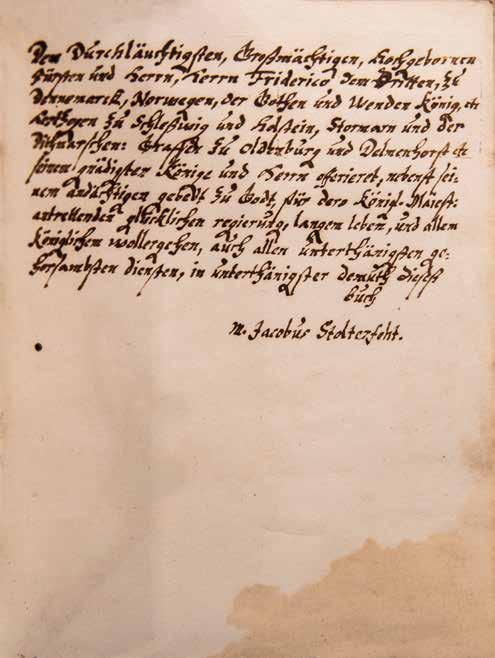 Dem Durchläuchtigsten, Großmächtigen, Hochgebornen
Fürsten und Herrn, Herrn Friderico dem Dritten, zu
Dennemarck, Norwegen, der Gothen und Wenden König, etc
Hertzogen zu Schleßwig und Holstein, Stormarn und der
Dithmarschen: Graffen zu Oldenburg und Delmenhorst etc
seinem gnädigsten Könige und Herrn offerieret, nebenst sei=
nem andächtigen gebedt zu Godt, für dero Königl. Maiest:
antrettenden glücklichen regierung, langem leben, und allem
Königlichen wollergehen, auch allen unterthänigsten ge=
horsambsten diensten, in unterthänigster demuth dieses
buch
M. Jacobus Stolterfoht.